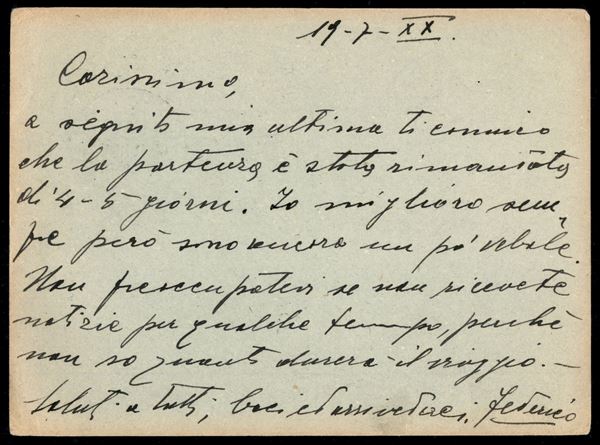 19-7-XX.
Carissimo,
a seguito mia ultima ti comunico
che la partenza è stata rimandata
di 4-5 giorni. Io miglioro sem-
pre però sono ancora un pó debole.
Non preoccupatevi se non ricevete
notizie per qualche tempo, perchè
non so quanto durerà il viaggio.-
Saluti a tutti, baci ed arrivederci. Federico